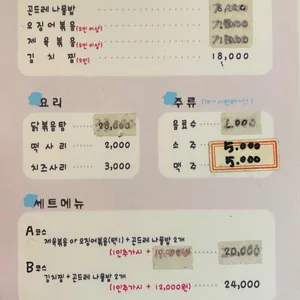 곤드레나물밥
오징어볶음 (2인 이상)
제육볶음 (2인 이상)
김치찜 (2인) 18,000
요리
닭볶음탕 28,000
떡사리 2,000
치즈사리 3,000
주류
음료수 2,000
소주 5.000
맥주 5.000
세트메뉴
A코스
제육볶음 or 오징어볶음(택1) + 곤드레 나물밥 2개
(1인추가시 + 20,000
B코스
김치찜 + 곤드레 나물밥 2개
(1인추가시 + 12,000원) 24,000